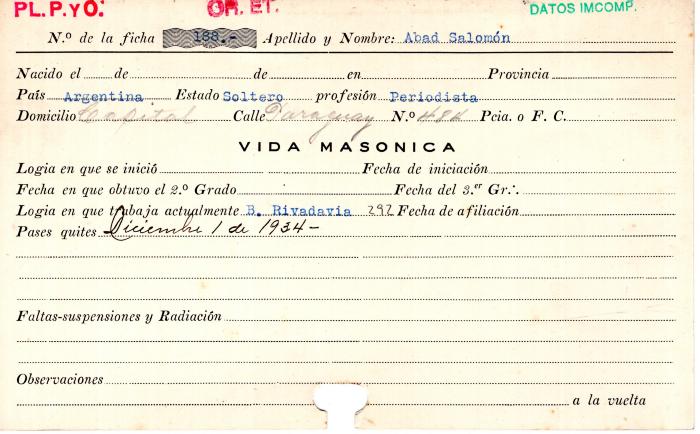 PL. P. Y O. OR. ET. DATOS IMCOMP.
N.º de la ficha 188.- Apellido y Nombre: Abad Salomón
Nacido el de de en Provincia
País Argentina Estado Soltero profesión Periodista
Domicilio Capital Calle Paraguay N.º 484 Pcia. o F. C.
VIDA MASONICA
Logia en que se inició Fecha de iniciación
Fecha en que obtuvo el 2.º Grado Fecha del 3.er Gr∴
Logia en que trabaja actualmente B. Rivadavia 297 Fecha de afiliación
Pases quites Diciembre 1 de 1934-
Faltas-suspensiones y Radiación
Observaciones
a la vuelta